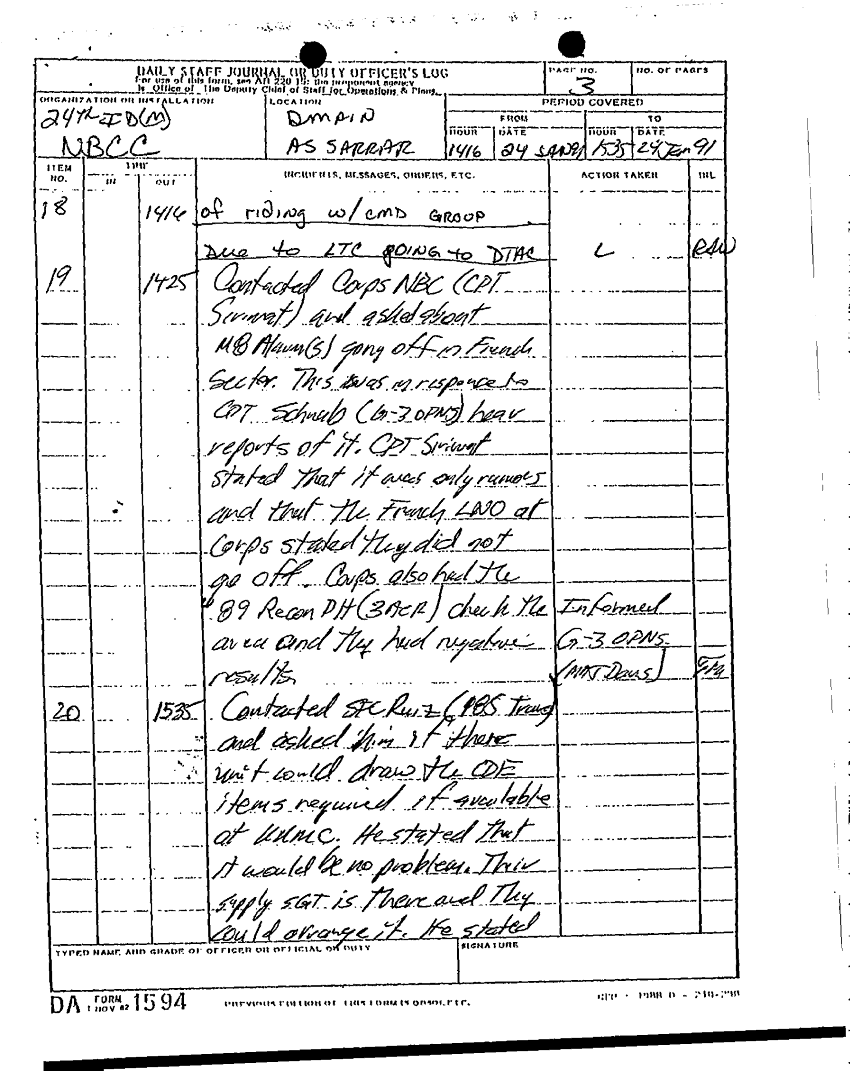 DAILY STAFF JOURNAL OR DUTY OFFICER'S LOG
For use of this form, see AR 220-15; the proponent agency
is Office of The Deputy Chief of Staff for Operations & Plans.
PAGE NO.
3
NO. OF PAGES
ORGANIZATION OR INSTALLATION
24th ID(M)
NBCC
LOCATION
DMAIN
AS SARRAR
PERIOD COVERED
FROM TO
HOUR DATE HOUR DATE
1416 24 JAN91 1535 24 Jan 91
ITEM NO. TIME IN OUT INCIDENTS, MESSAGES, ORDERS, ETC. ACTION TAKEN INL
18 1416 of riding w/ CMD GROUP
Due to LTC going to DTAC L
19 1425 Contacted Corps NBC (CPT
Sirimat) and asked about
M8 Alarm(s) gong off in French
Sector. This was in responce to
CPT Schwab (G-3 OPNS) hear
reports of it. CPT Sirimat
stated that it was only rumors
and that the French LNO at
Corps stated they did not
go off. Corps also had the
89 Recon (3ACR) check the Informed
area and they had negative G-3 OPNS
results. (MAJ Davis)
20 1535 Contacted SFC Ruiz (
and asked him if there
unit could draw the CDE
items required if available
at KKMC. He stated that
it would be no problem. Thier
supply SGT is there and they
could arrange it. He stated
TYPED NAME AND GRADE OF OFFICER OR OFFICIAL ON DUTY
SIGNATURE
DA FORM 1 NOV 62 1594
PREVIOUS EDITION OF THIS FORM IS OBSOLETE.